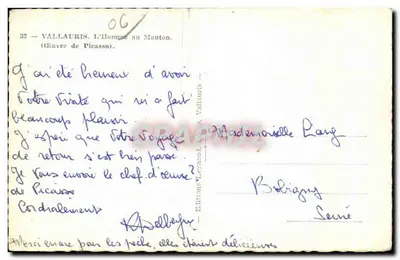 06/
33 — VALLAURIS. L'Homme au Mouton.
(Œuvre de Picasso).
J'ai été d'avoir
Votre Visite qui m'a fait
beaucoup plaisir
J'espère que Votre Voyage
de retour s'est bien passé
Je vous envoie le chef d'œuvre?
de Picasso
Cordialement
Merci encore pour les pêches, elles étaient délicieuses
Mademoiselle
Bobigny
Seine